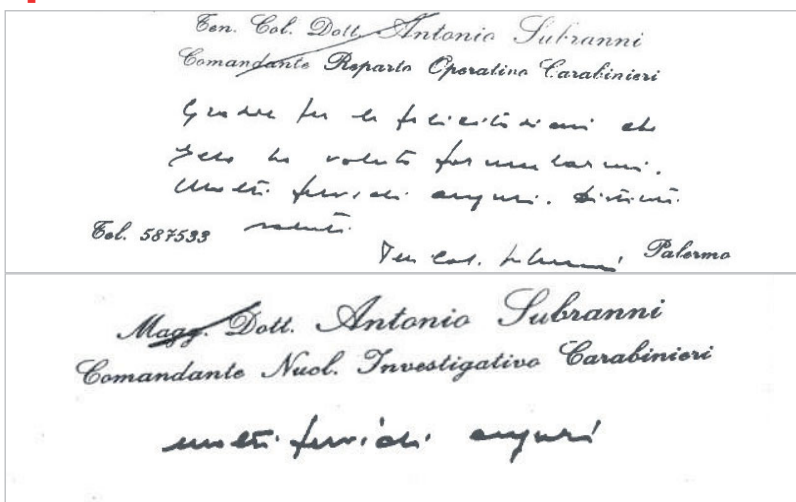 Ten. Col. Dott. Antonio Subranni
Comandante Reparto Operativo Carabinieri
Grazie per le felicitazioni che
ha voluto formularmi.
Molti fervidi auguri. Distinti
saluti.
Tel. 587533
Ten Col. Subranni Palermo
Magg. Dott. Antonio Subranni
Comandante Nucl. Investigativo Carabinieri
molti fervidi auguri